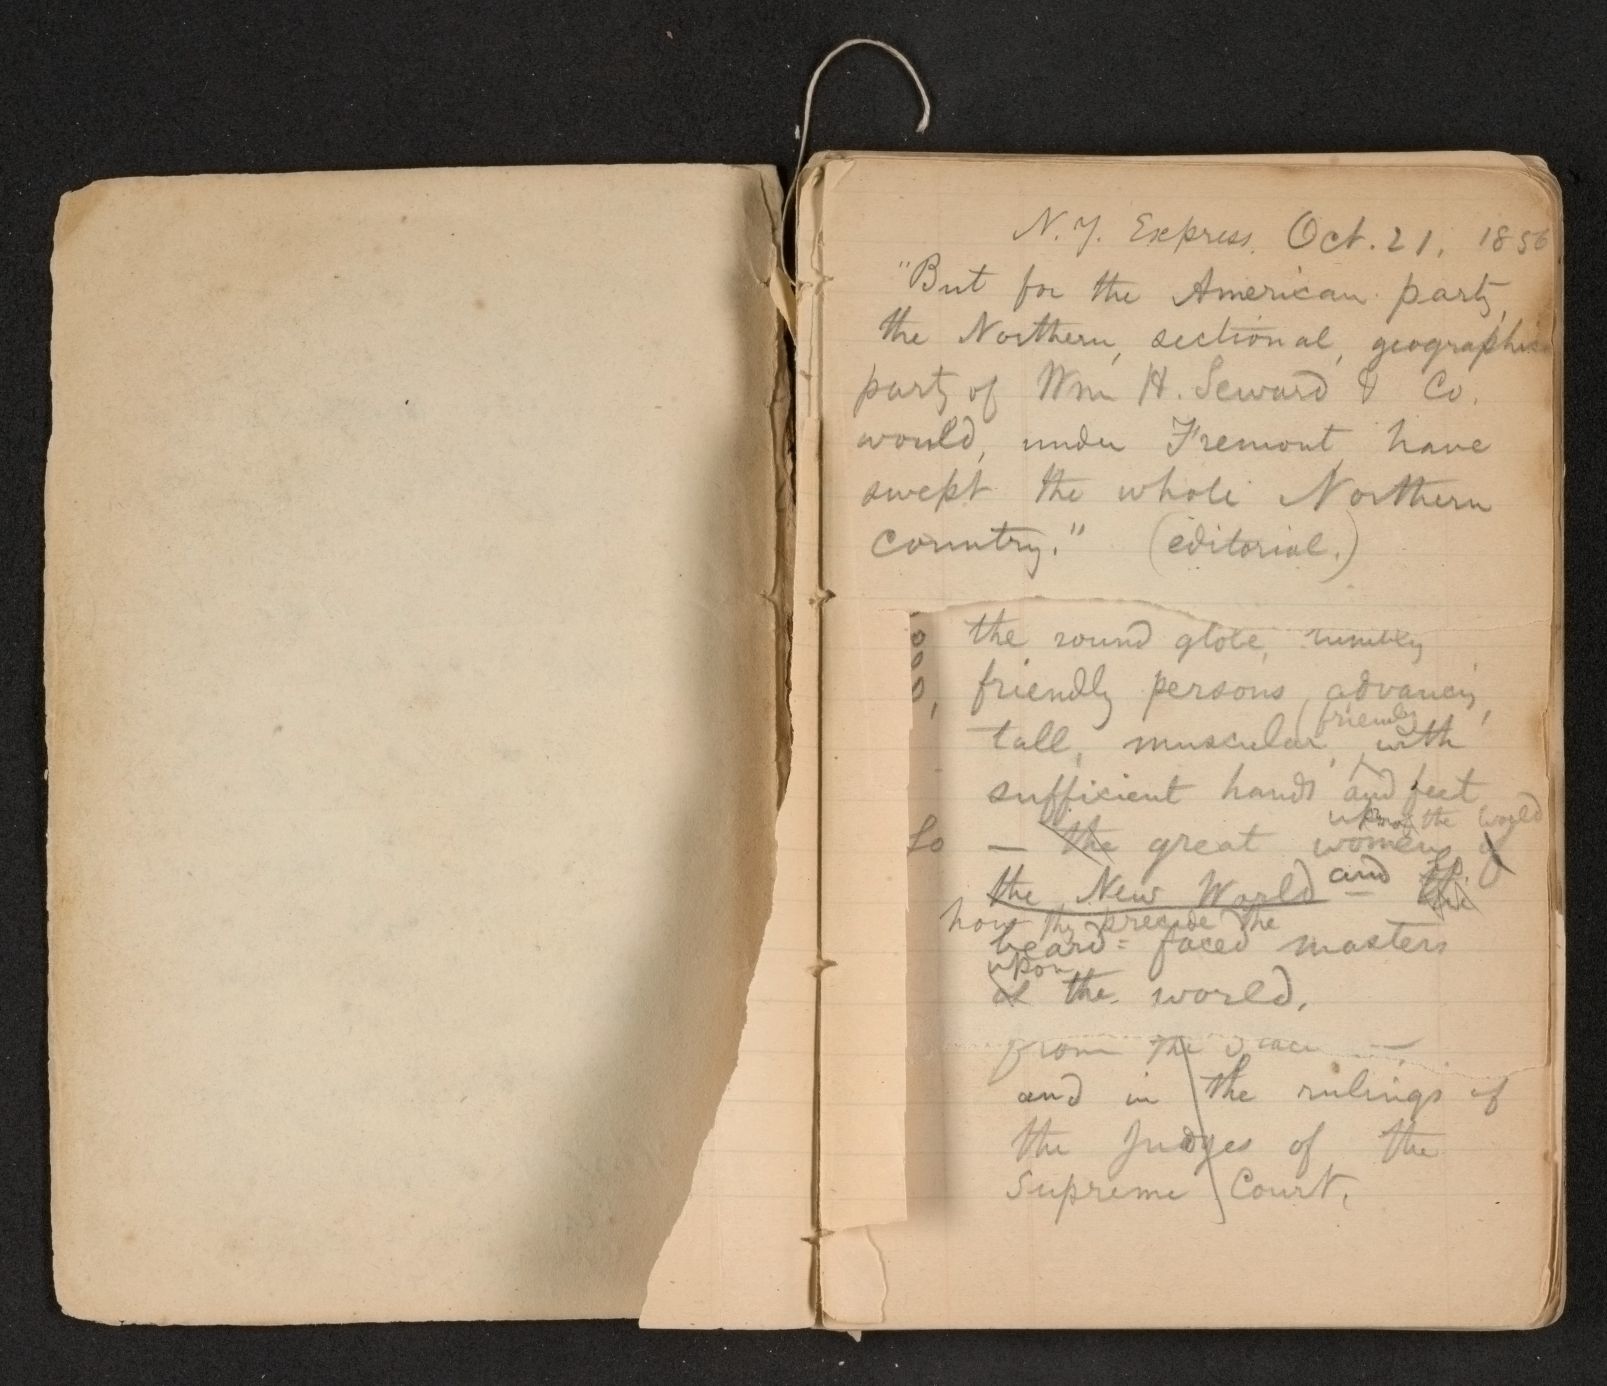 N. Y. Express. Oct. 21, 1856
"But for the American party,
the Northern, sectional, geographic
party of Wm H. Seward & Co.
would, under Fremont, have
swept the whole Northern
country." (editorial.)
the round globe,
friendly persons, advancing,
friendly
tall, muscular, with
sufficient hands and feet
upon the world
Lo — the great women of
the New World and the
how they precede the
beard-faced masters
upon
of the world.
from the
and in the rulings of
the Judges of the
Supreme Court.